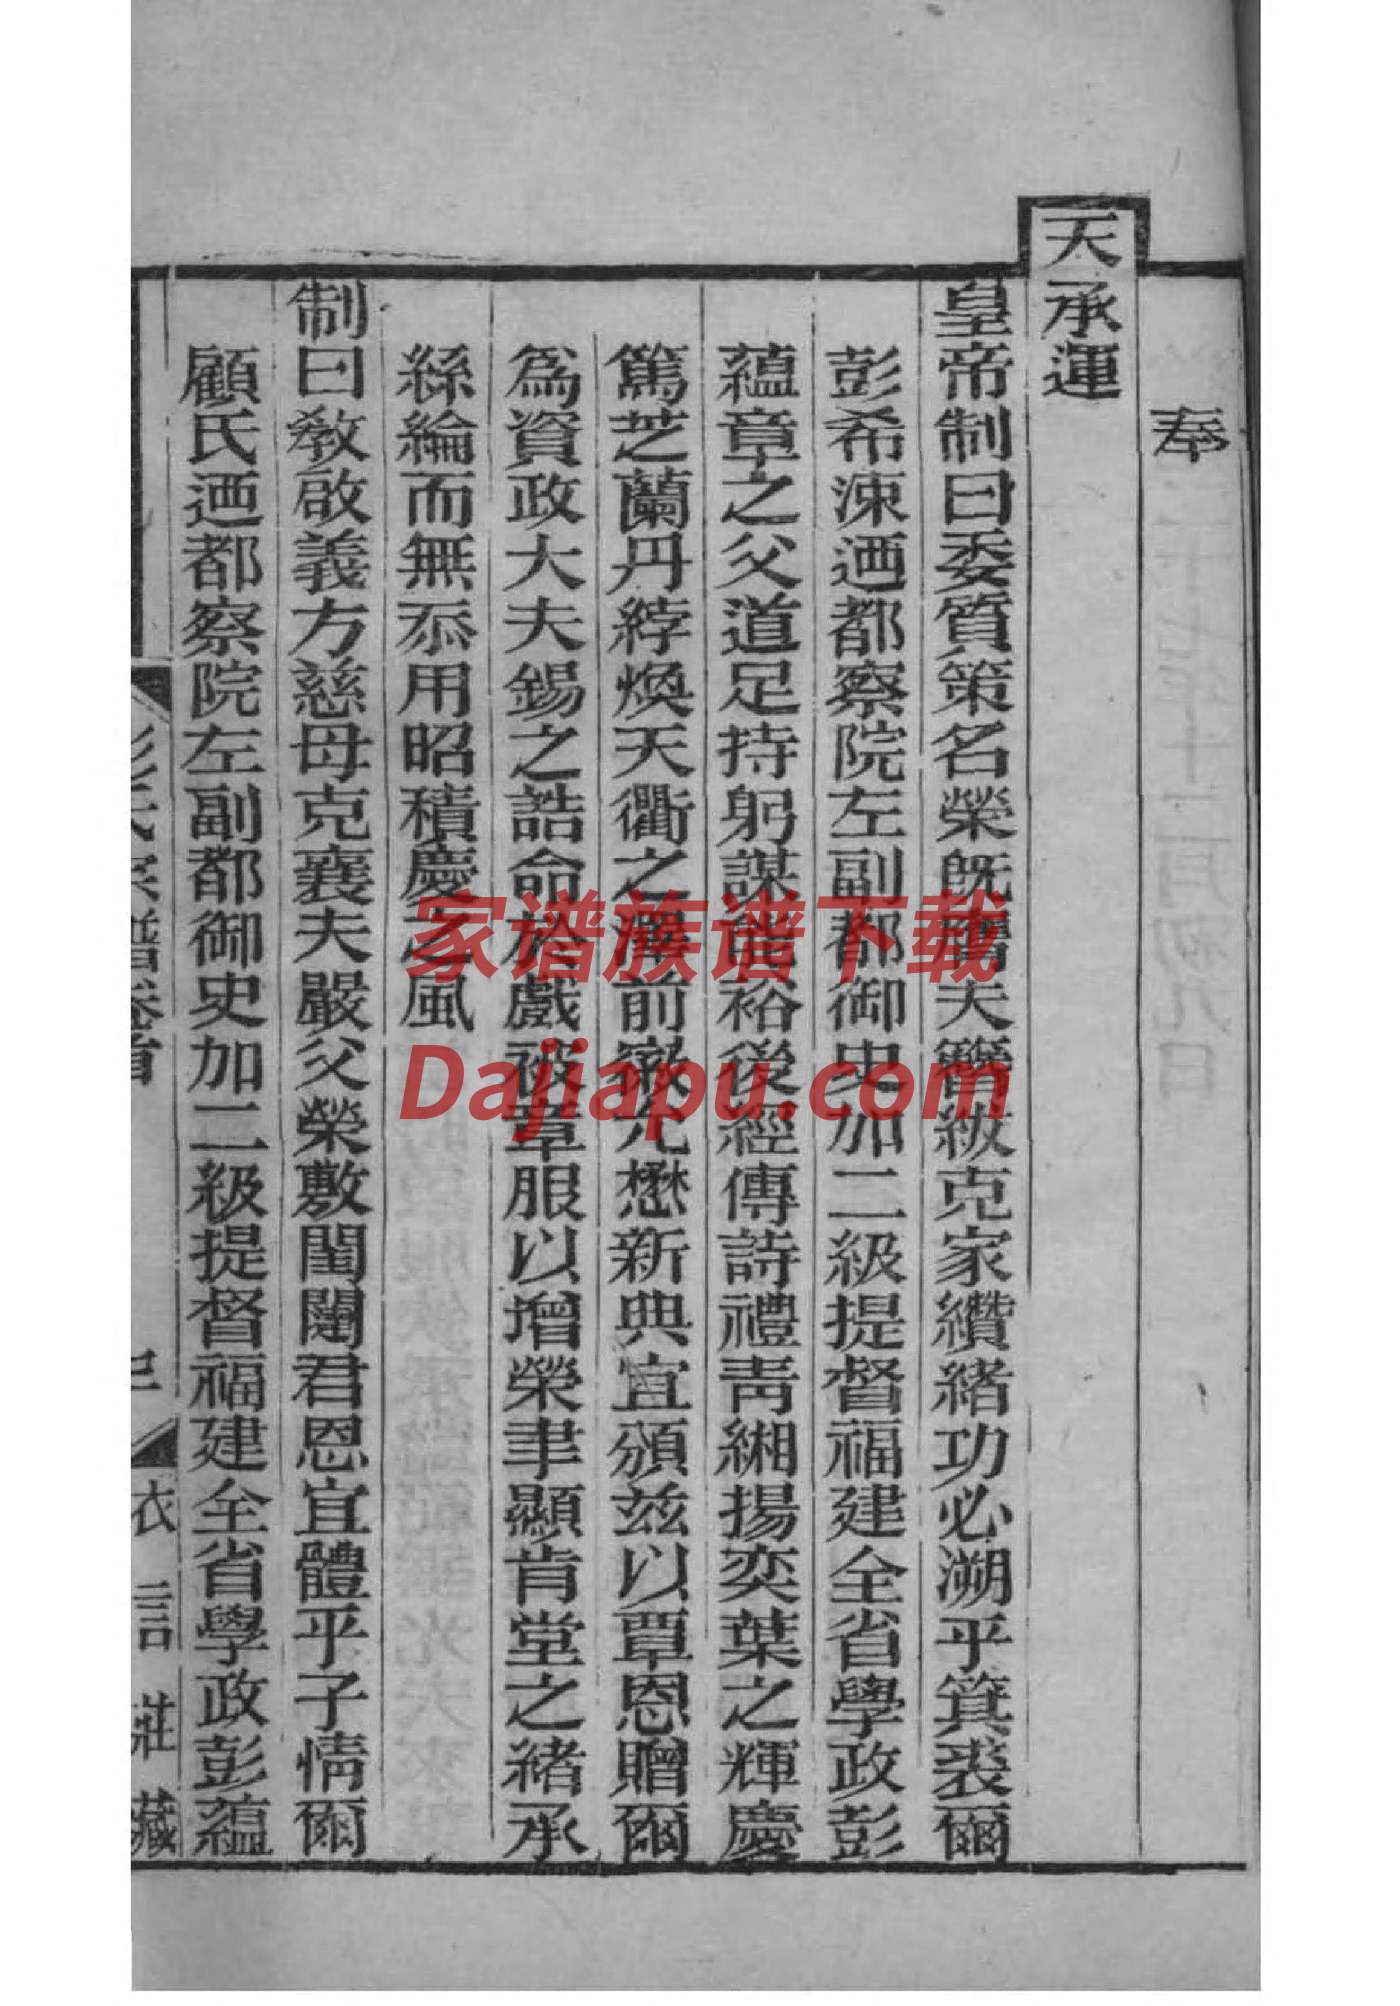 奉
天承運
皇帝制曰委質策名榮旣夫簪紱克家纘緒功必溯乎箕裘爾
彭希涑迺都察院左副都御史加二級提督福建全省學政彭
蘊章之父道足持躬謀能裕後經傳詩禮靑緗揚奕葉之輝慶
篤芝蘭丹綍煥天衢之前徽允懋新典宜頒兹以覃恩贈爾
爲資政大夫錫之誥命於戲被章服以增榮聿顯肯堂之緒承
絲綸而無忝用昭積慶之風
制曰敎啟義方慈母克襄夫嚴父榮敷閨闥君恩宜體乎子情爾
顧氏迺都察院左副都御史加二級提督福建全省學政彭蘊
彭氏宗譜卷首
衣言莊藏
家谱族谱下载
Dajiapu.com